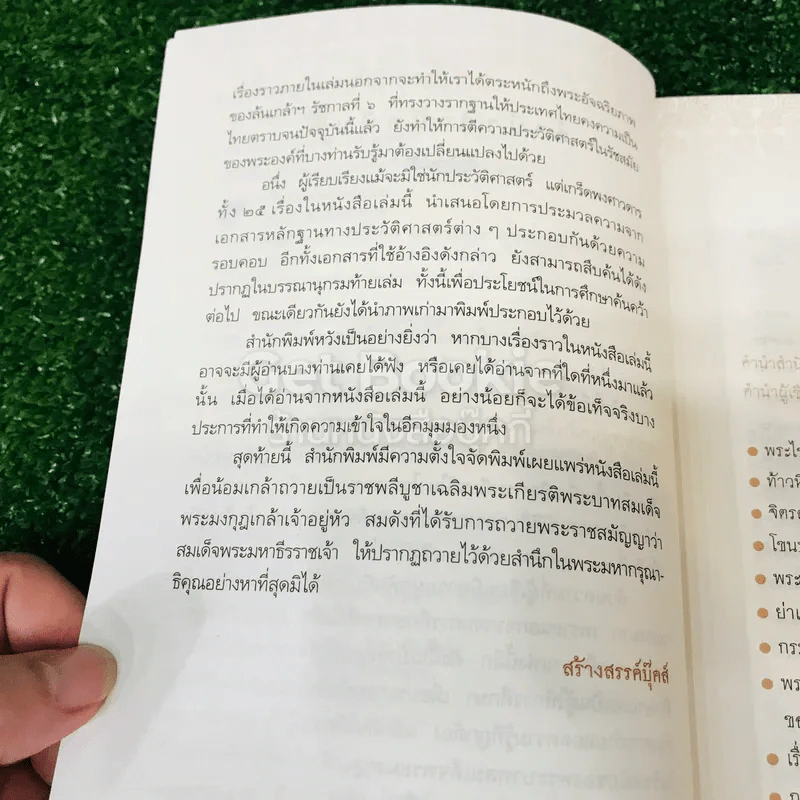 เรื่องราวภายในเล่มนอกจากจะทำให้เราได้ตระหนักถึงพระอัจฉริยภาพ
ของล้นเกล้าฯ รัชกาลที่ ๖ ที่ทรงวางรากฐานให้ประเทศไทยคงความเป็น
ไทยตราบจนปัจจุบันนี้แล้ว ยังทำให้การตีความประวัติศาสตร์ในรัชสมัย
ของพระองค์ที่บางท่านรับรู้มาต้องเปลี่ยนแปลงไปด้วย
อนึ่ง ผู้เรียบเรียงแม้จะมิใช่นักประวัติศาสตร์ แต่เกร็ดพงศาวดาร
ทั้ง ๒๕ เรื่องในหนังสือเล่มนี้ นำเสนอโดยการประมวลความจาก
เอกสารหลักฐานทางประวัติศาสตร์ต่าง ๆ ประกอบกันด้วยความ
รอบคอบ อีกทั้งเอกสารที่ใช้อ้างอิงดังกล่าว ยังสามารถสืบค้นได้ดัง
ปรากฏในบรรณานุกรมท้ายเล่ม ทั้งนี้เพื่อประโยชน์ในการศึกษาค้นคว้า
ต่อไป ขณะเดียวกันยังได้นำภาพเก่ามาพิมพ์ประกอบไว้ด้วย
สำนักพิมพ์หวังเป็นอย่างยิ่งว่า หากบางเรื่องราวในหนังสือเล่มนี้
อาจจะมีผู้อ่านบางท่านเคยได้ฟัง หรือเคยได้อ่านจากที่ใดที่หนึ่งมาแล้ว
นั้น เมื่อได้อ่านจากหนังสือเล่มนี้ อย่างน้อยก็จะได้ข้อเท็จจริงบาง
ประการที่ทำให้เกิดความเข้าใจในอีกมุมมองหนึ่ง
สุดท้ายนี้ สำนักพิมพ์มีความตั้งใจจัดพิมพ์เผยแพร่หนังสือเล่มนี้
เพื่อน้อมเกล้าถวายเป็นราชพลีบูชาเฉลิมพระเกียรติพระบาทสมเด็จ
พระมงกุฎเกล้าเจ้าอยู่หัว สมดังที่ได้รับการถวายพระราชสมัญญาว่า
สมเด็จพระมหาธีรราชเจ้า ให้ปรากฏถวายไว้ด้วยสำนึกในพระมหากรุณา-
ธิคุณอย่างหาที่สุดมิได้
สร้างสรรค์บุ๊คส์
Get Bookie
ร้านหนังสือบุ๊คกี้
คำนำสำนั
คำนำผู้เรี
• พระไร
• ท้าวหิ
• จิตร
• โขน
• พระ
• ย่าเ
• กรม
• พร
• เรื่